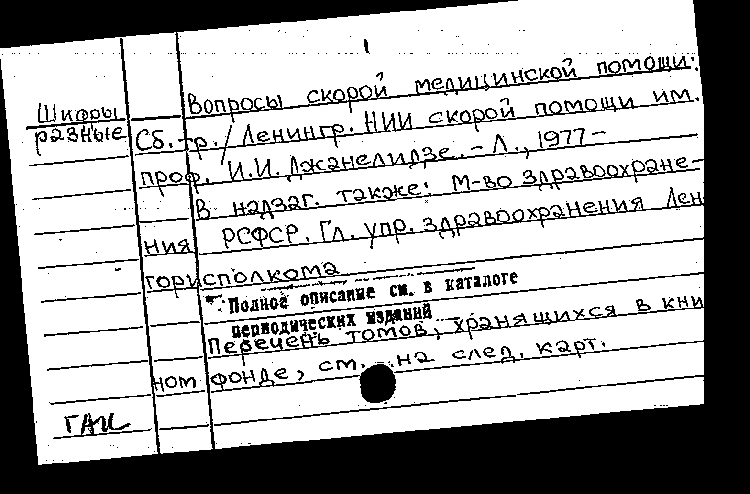 1
Шифры
разные
Вопросы скорой медицинской помощи:
Сб. тр. / Ленингр. НИИ скорой помощи им.
проф. И.И. Джанелидзе. - Л., 1977-
В надзаг. также: М-во здравоохране-
ния РСФСР. Гл. упр. здравоохранения Лен
горисполкома
Полное описание см. в каталоге
периодических изданий
Перечень томов, хранящихся в кни
ном фонде, см. на след. карт.